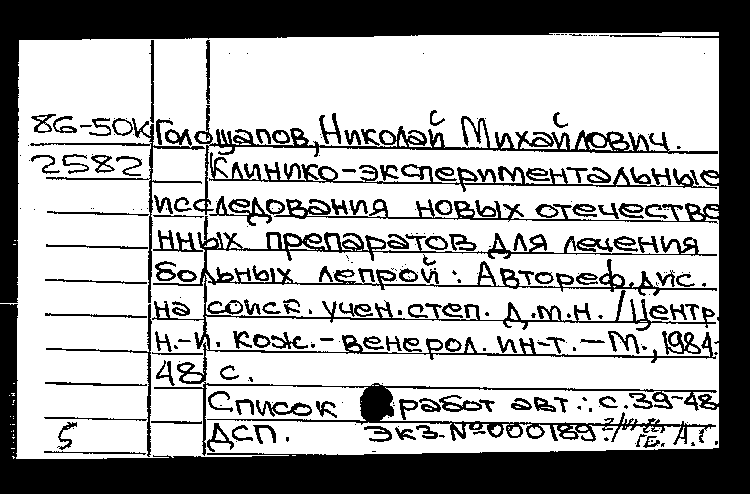 86-50К Голощапов, Николай Михайлович.
2582 Клинико-экспериментальные
исследования новых отечестве
нных препаратов для лечения
больных лепрой: Автореф.дис.
на соиск. учен. степ. д.м.н. /Центр.
н.-и. кож.-венерол. ин-т. - М., 1984.
48 с.
Список работ авт.: с.39-48
5 ДСП. Экз.№000189. А.Г.